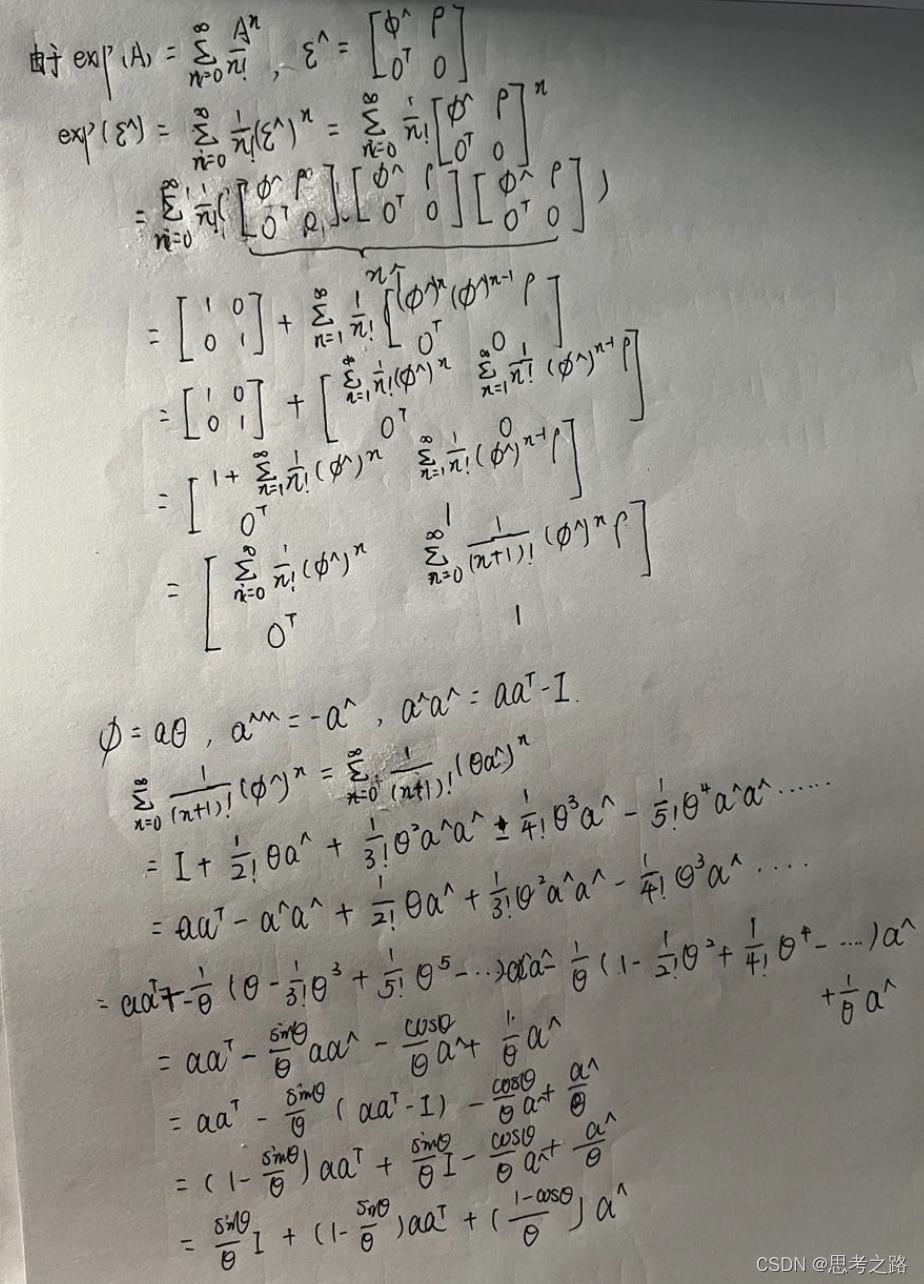 由于 exp(A) = ∑_{n=0}^{∞} A^n/n! , ξ^ = [ϕ^ ρ; 0^T 0]
exp(ξ^) = ∑_{n=0}^{∞} 1/n! (ξ^)^n = ∑_{n=0}^{∞} 1/n! [ϕ^ ρ; 0^T 0]^n
= ∑_{n=0}^{∞} 1/n! ( [ϕ^ ρ; 0^T 0] · [ϕ^ ρ; 0^T 0] [ϕ^ ρ; 0^T 0] )
n个
= [1 0; 0 1] + ∑_{n=1}^{∞} 1/n! [(ϕ^)^n (ϕ^)^{n-1} ρ; 0^T 0]
= [1 0; 0 1] + [∑_{n=1}^{∞} 1/n! (ϕ^)^n ∑_{n=1}^{∞} 1/n! (ϕ^)^{n-1} ρ; 0^T 0]
= [1 + ∑_{n=1}^{∞} 1/n! (ϕ^)^n ∑_{n=1}^{∞} 1/n! (ϕ^)^{n-1} ρ; 0^T 1]
= [∑_{n=0}^{∞} 1/n! (ϕ^)^n ∑_{n=0}^{∞} 1/(n+1)! (ϕ^)^n ρ; 0^T 1]
ϕ = aθ , a^^^ = -a^ , a^a^ = aa^T - I.
∑_{n=0}^{∞} 1/(n+1)! (ϕ^)^n = ∑_{n=0}^{∞} 1/(n+1)! (θa^)^n
= I + 1/2! θa^ + 1/3! θ²a^a^ - 1/4! θ³a^ - 1/5! θ⁴a^a^ ......
= aa^T - a^a^ + 1/2! θa^ + 1/3! θ²a^a^ - 1/4! θ³a^ ....
= aa^T - 1/θ (θ - 1/3! θ³ + 1/5! θ⁵ - ...) a^a^ - 1/θ (1 - 1/2! θ² + 1/4! θ⁴ - ...) a^
+ 1/θ a^
= aa^T - sinθ/θ aa^ - cosθ/θ a^ + 1/θ a^
= aa^T - sinθ/θ (aa^T - I) - cosθ/θ a^ + a^/θ
= (1 - sinθ/θ) aa^T + sinθ/θ I - cosθ/θ a^ + a^/θ
= sinθ/θ I + (1 - sinθ/θ) aa^T + (1-cosθ/θ) a^
CSDN @思考之路